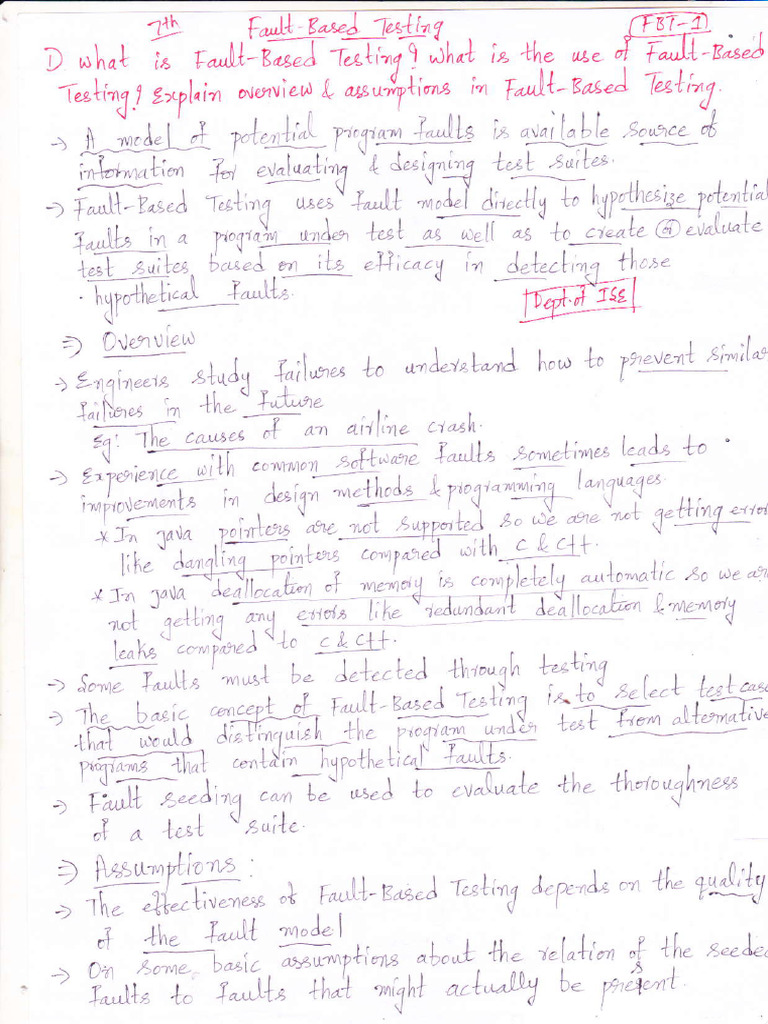 7th Fault-Based Testing FBT-1
1) what is Fault-Based Testing? what is the use of Fault-Based
Testing? Explain overview & assumptions in Fault-Based Testing.
→ A model of potential program faults is available source of
information for evaluating & designing test suites.
→ Fault-Based Testing uses fault model directly to hypothesize potential
faults in a program under test as well as to create or evaluate
test suites based on its efficacy in detecting those
hypothetical faults.
Dept. of ISE
⇒ Overview
→ Engineers study failures to understand how to prevent similar
failures in the future
Eg: The causes of an airline crash.
→ Experience with common software faults sometimes leads to
improvements in design methods & programming languages.
* In java pointers are not supported so we are not getting errors
like dangling pointers compared with C & C++.
* In java deallocation of memory is completely automatic so we are
not getting any errors like redundant deallocation & memory
leaks compared to C & C++.
→ Some faults must be detected through testing
→ The basic concept of Fault-Based Testing is to select test case
that would distinguish the program under test from alternative
programs that contain hypothetical faults.
→ Fault seeding can be used to evaluate the thoroughness
of a test suite.
⇒ Assumptions:
→ The effectiveness of Fault-Based Testing depends on the quality
of the fault model
→ On some basic assumptions about the relation of the seeded
faults to faults that might actually be present.